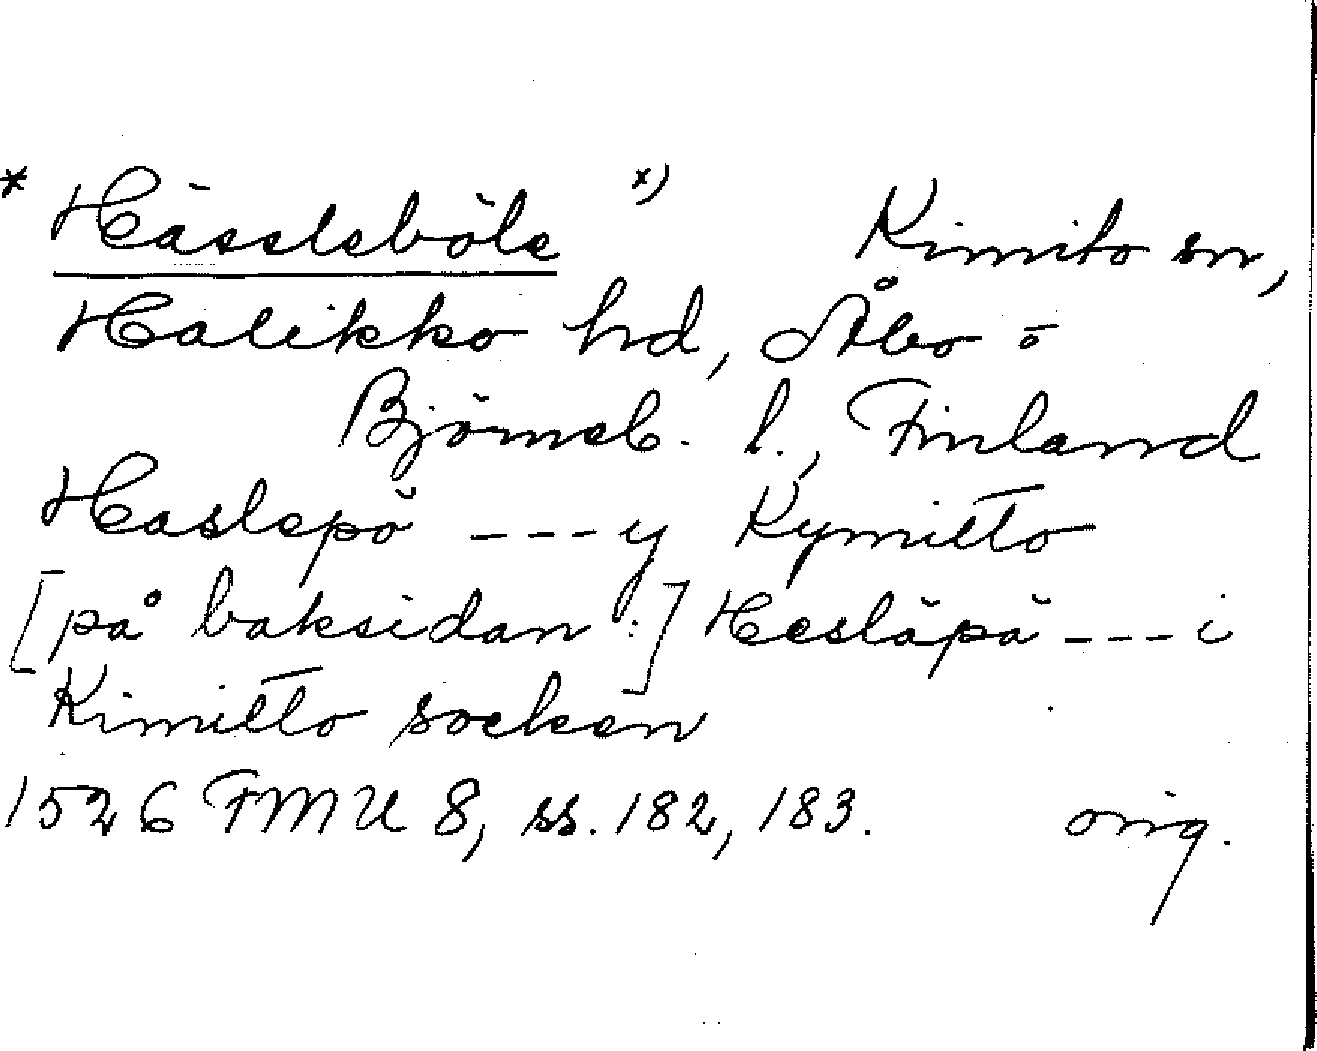 * Hässleböle x) Kimito sn,
Halikko hd, Åbo o
Björneb. l., Finland
Haslepö --- y Kymitto
[på baksidan:] Hesläpä --- i
Kimitto socken
1526 FMU 8, ss. 182, 183. orig.